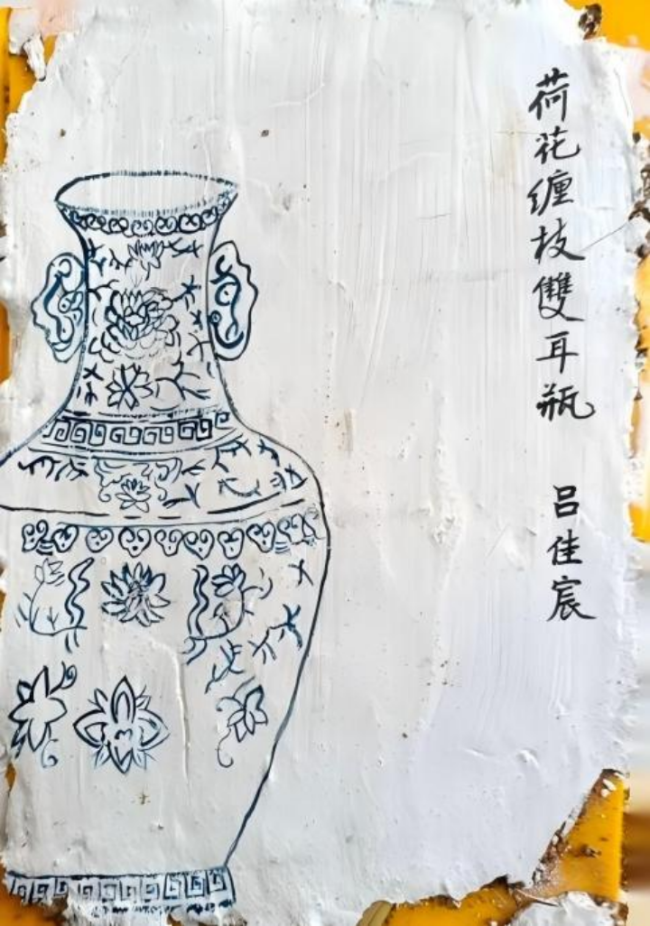 荷花缠枝雙耳瓶
吕佳宸